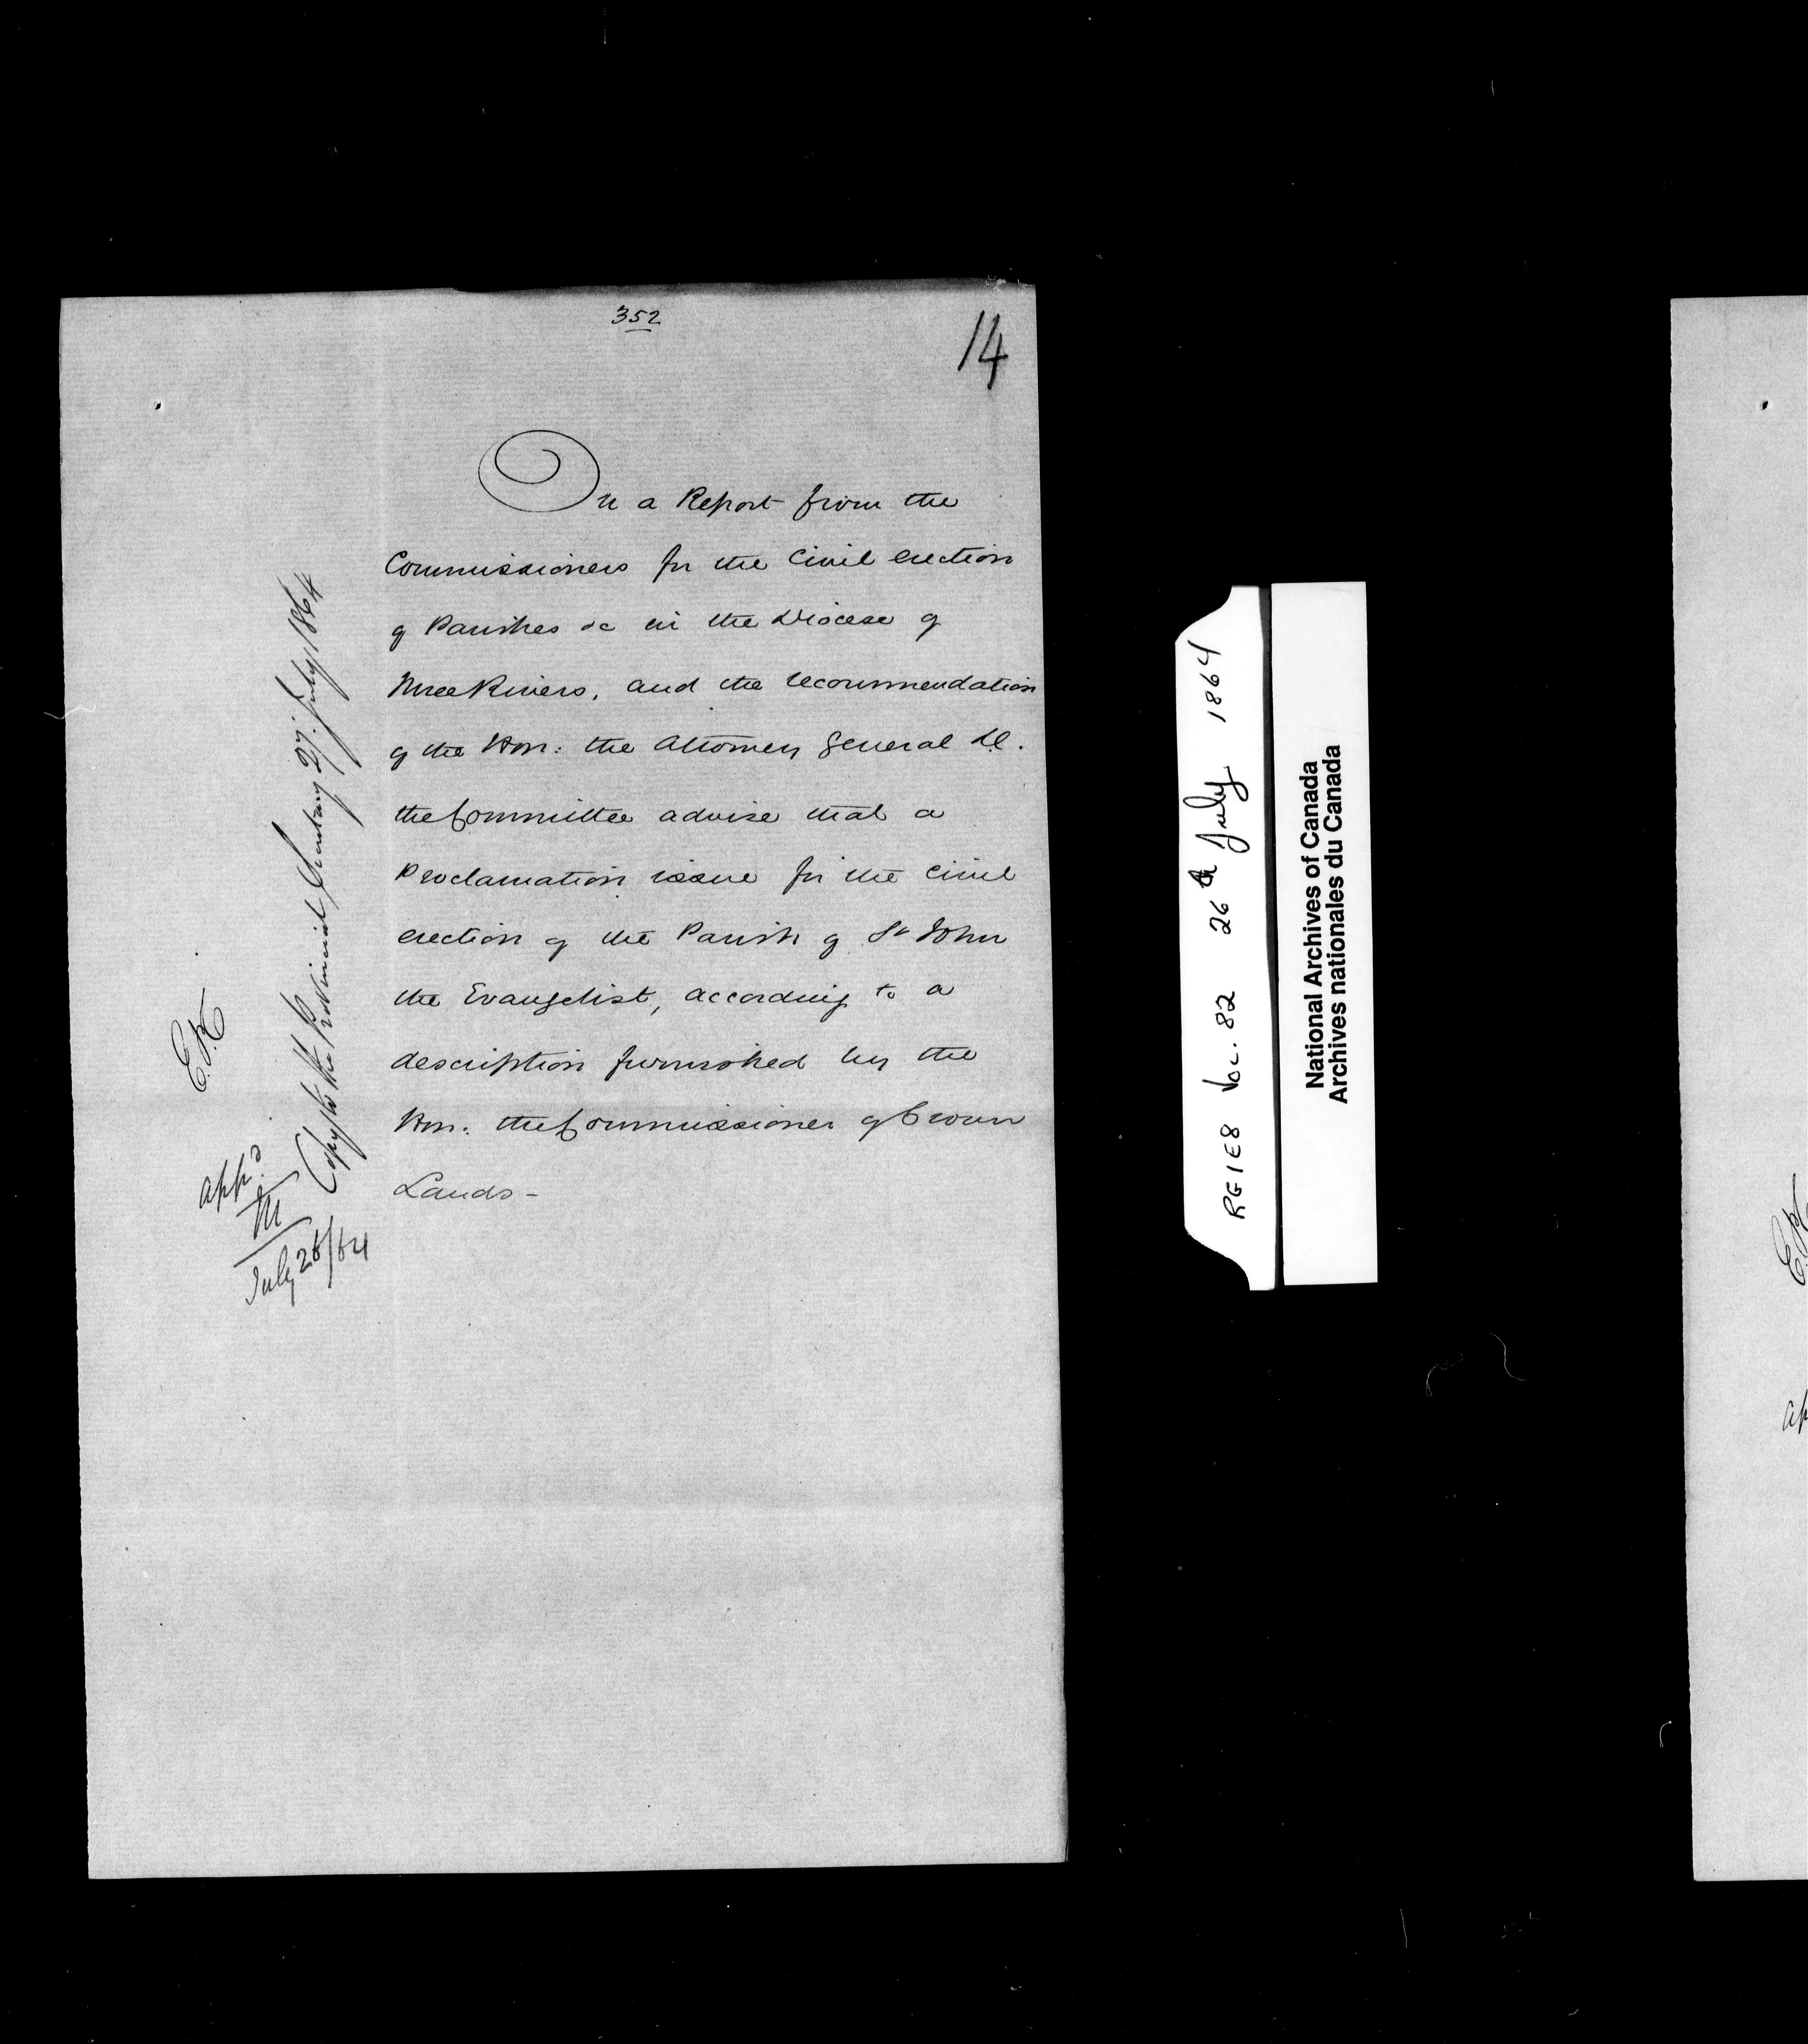 352
14
On a Report from the
Commissioners for the Civil erection
of Parishes &c in the Diocese of
Three Rivers, and the recommendation
of the Hon: the Attorney General L.C.
the Committee advise that a
Proclamation issue for the civil
erection of the Parish of St John
the Evangelist, according to a
description furnished by the
Hon: the Commissioner of Crown
Lands -
Copy to the Provincial Secretary 27. July 1864
appd
M
July 26/64
RG1E8 Vol. 82 26th July 1864
National Archives of Canada
Archives nationales du Canada